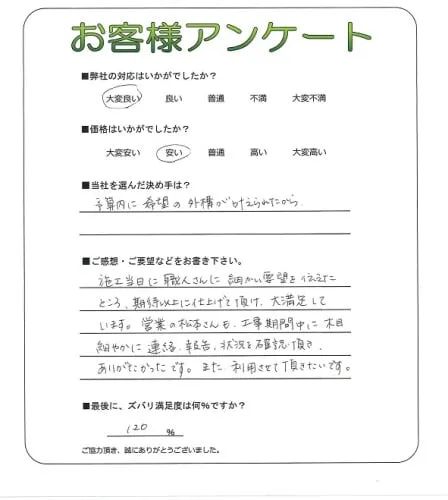 お客様アンケート
■弊社の対応はいかがでしたか？
大変良い 良い 普通 不満 大変不満
■価格はいかがでしたか？
大変安い 安い 普通 高い 大変高い
■当社を選んだ決め手は？
予算内に希望の外構が叶えられたから
■ご感想・ご要望などをお書き下さい。
施工当日に職人さんに細かい要望を伝えた
ところ、期待以上に仕上げて頂け、大満足して
います。営業の松本さんも、工事期間中に、木目
細やかに連絡、報告、状況を確認頂き、
ありがたかったです。また、利用させて頂きたいです。
■最後に、ズバリ満足度は何%ですか？
120 %
ご協力頂き、誠にありがとうございました。